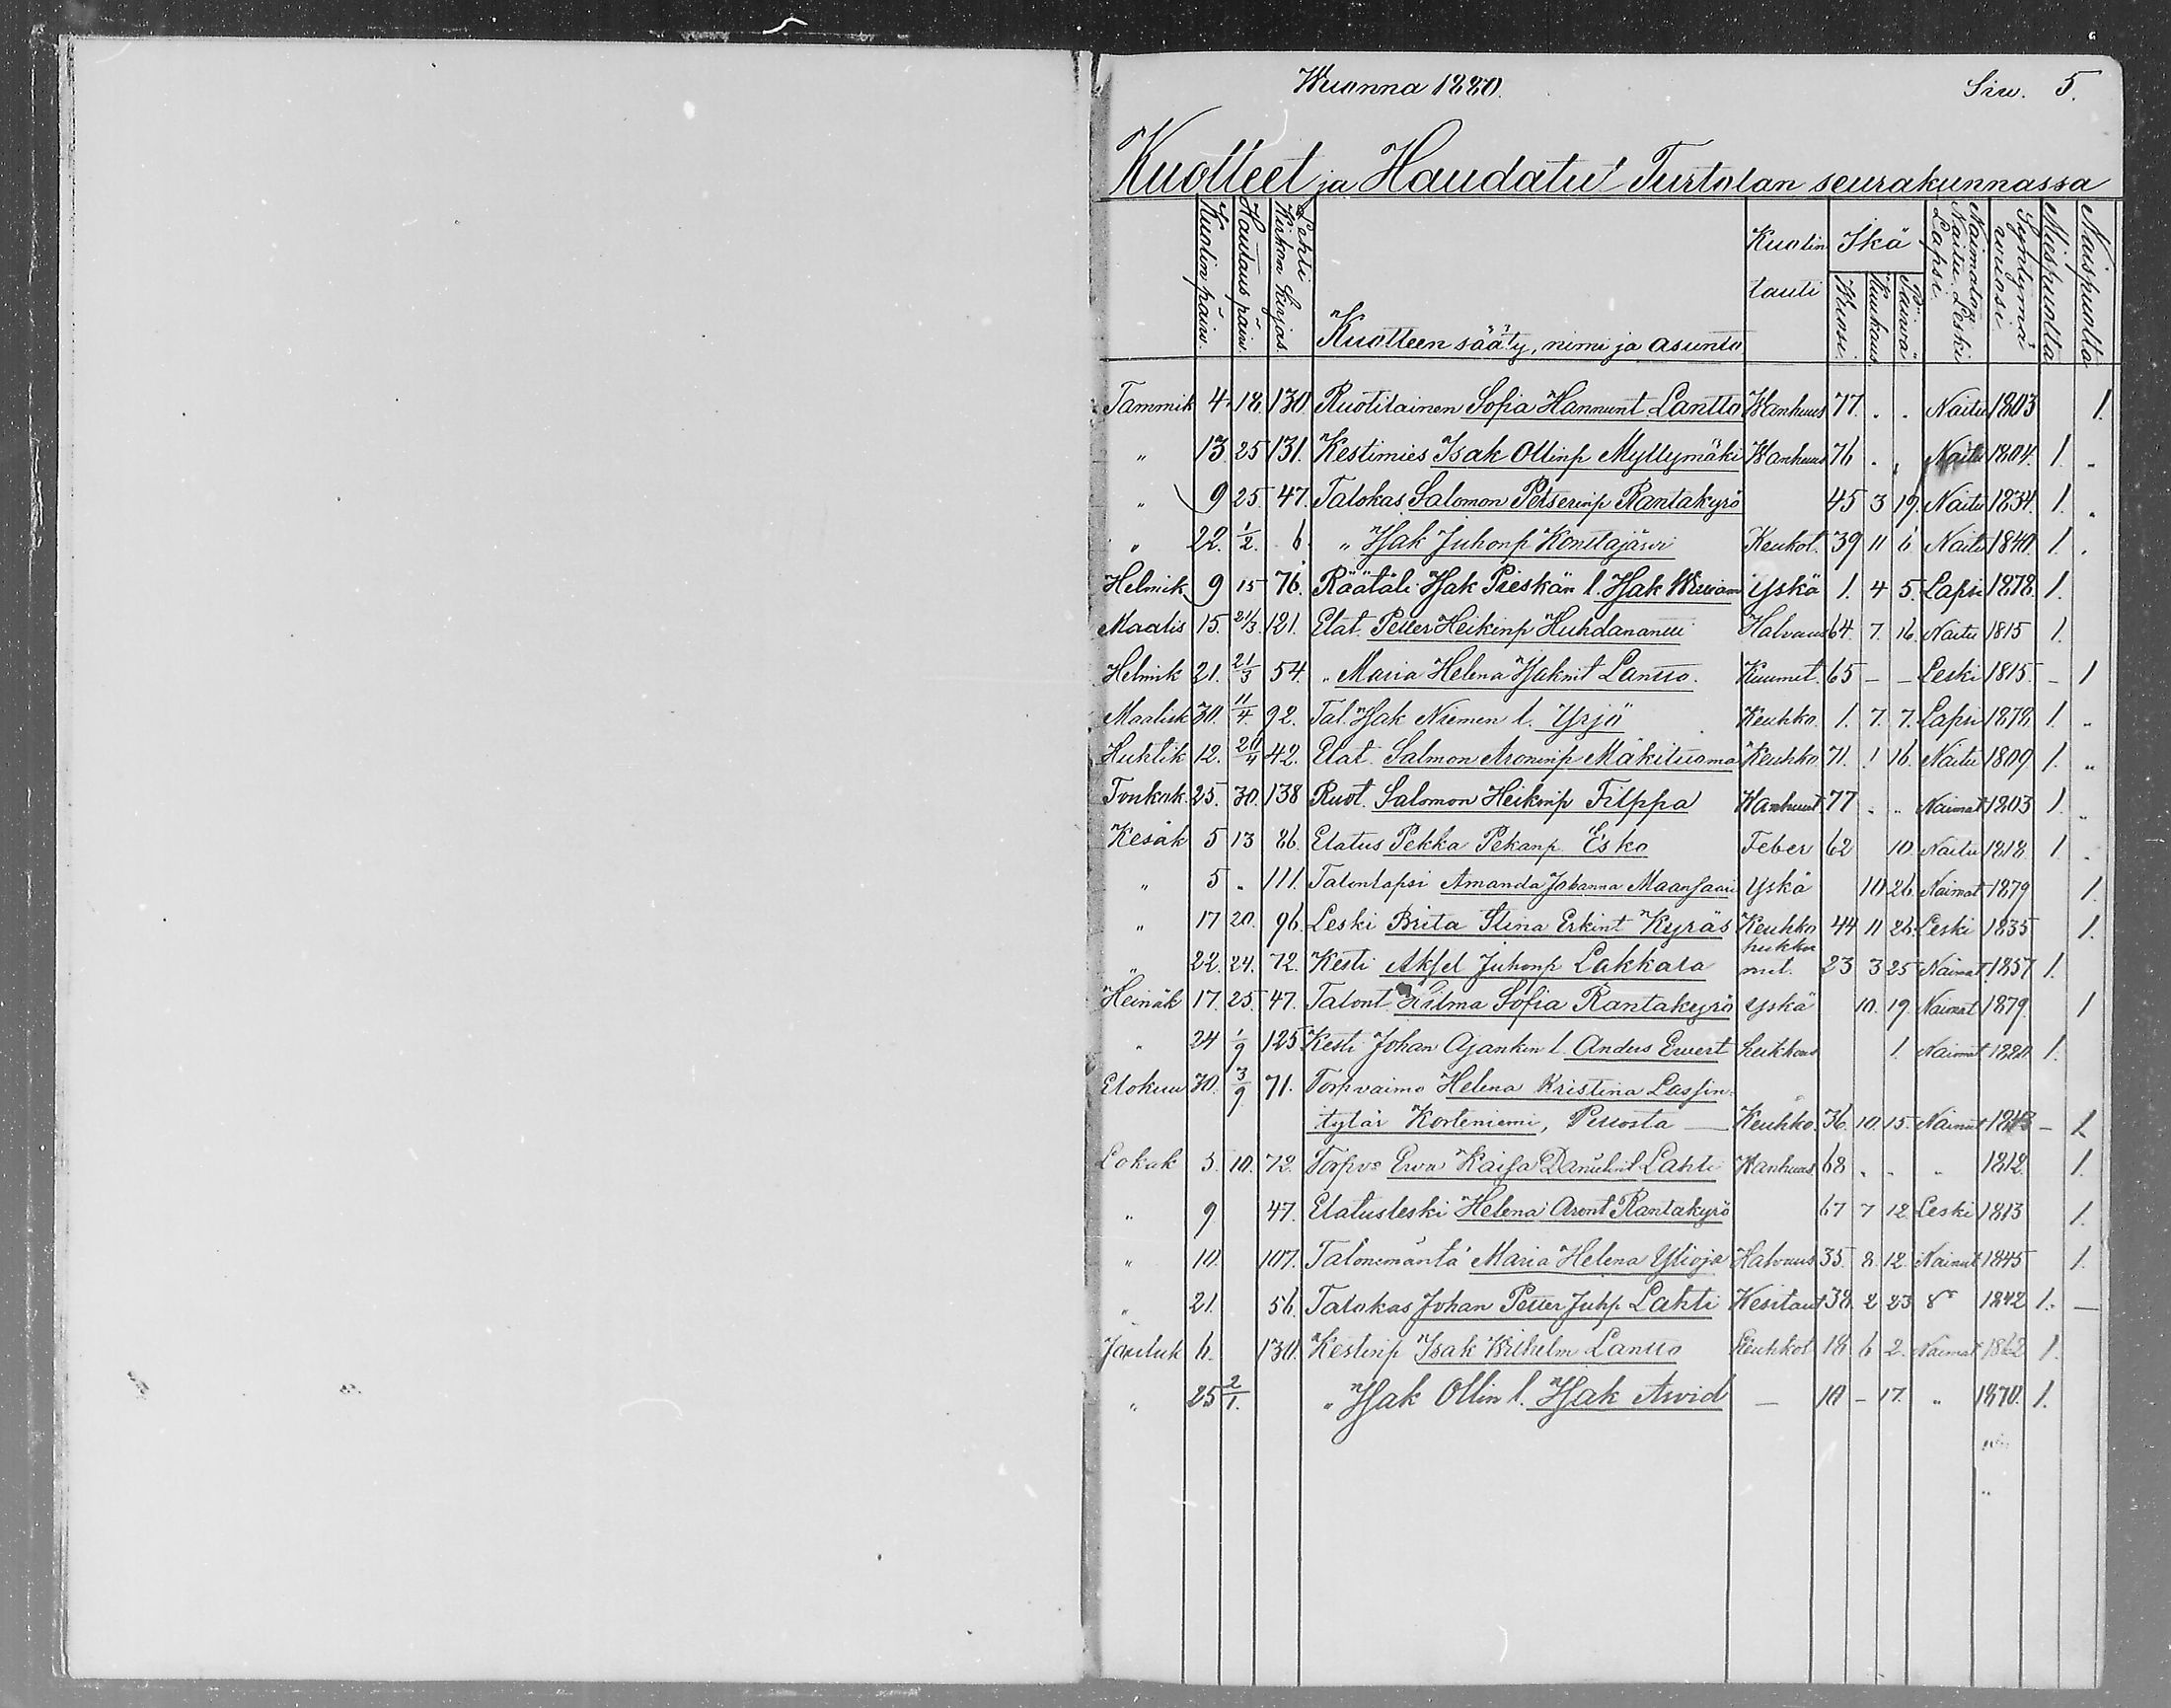 Wuonna 1880. Siw. 5.
Kuolleet ja Haudatut Turtolan seurakunnassa
Kuolin päiw. Hautaus päiw. Lehti Kirkon kirjas. Kuolleen sääty, nimi ja asunto Kuolin tauti Ikä Wuosi. Kuukaus Päiwä Naimatoin Naitu. Leski Lapsi. Syntymä wuosi Miespuolta Naispuolta
Tammik 4. 18. 130. Ruotilainen Sofia Hannunt. Lantto Wanhuus 77. . . Naitu 1803 1.
" 13. 25 131. Kestimies Isak Ollinp Myllymäki Wanhuus 76 . . Naitu 1804. 1. "
" 9 25. 47. Talokas Salomon Petterinp Rantakyrö 45 3 19. Naitu 1834. 1. "
" 22. 1/2. 6. " Isak Juhonp Konttajärwi Keuhkot. 39 11 6 Naitu 1840. 1. .
Helmik 9 15 76. Räätäli Isak Pieskän l. Isak William Yskä 1. 4 5. Lapsi 1878. 1.
Maalis 15. 21/3. 121. Elat. Petter Heikinp Huhdanantti Halvaus 64. 7. 16. Naitu 1815 1.
Helmik 21. 21/3 54. " Maria Helena Isaknt Lantto. Kuumet. 65 - - Leski 1815. - 1
Maalisk 30. 11/4. 92. Tal. Isak Niemen l. Yrjö Keuhko. 1. 7. 7. Lapsi 1878. 1. "
Huhtik 12. 20/4 42. Elat. Salmon Aroninp Mäkituoma Keuhko. 71. 1 16. Naitu 1809 1. "
Toukok. 25. 30. 138 Ruot. Salomon Heikinp Filppa Wanhuut. 77 . .. Naimat 1803 1. "
Kesäk 5 13 86. Elatus Pekka Pekanp. Esko Feber 62 10. Naitu 1818. 1. "
" 5 " 111. Talonlapsi Amanda Johanna Maansaari Yskä 10 26. Naimat 1879 1.
" 17 20. 96. Leski Brita Stina Erkint Kyräs Keuhko 44 11 26. Leski 1835 1.
" 22. 24. 72. Kesti Aksel Juhonp Lakkala 23 3 25 Naimat. 1857 1.
Heinäk 17. 25. 47. Talont Hilma Sofia Rantakyrö Yskä 10. 19. Naimat 1879. 1
" 24 1/9 125 Kesti Johan Ajankin l. Anders Ewert 1. Naimat 1880. 1.
Elokuu 30. 3/9. 71. Torpvaimo Helena Kristina Lassin-
tytär Korteniemi, Pellosta — Keuhko. 36. 10. 15. Nainut 1843 - 1
Lokak 3. 10. 72. Torpv: Ewa Kaisa Danielint Lahti Wanhuus 68 . . " 1812. 1.
" 9 47. Elatusleski Helena Aront Rantakyrö 67 7 12. Leski 1813 1.
" 10. 107. Talonemäntä Maria Helena Ylioja Halvaus 35. 8. 12. Nainut 1845 1.
" 21. 56. Talokas Johan Petter Juhp Lahti Wesitaut 38. 2 23 1842 1. —
Jouluk 6. 130. Kestinp Isak Wilhelm Lantto Keuhkot 18 6 2. Naimat 1862 1.
" 25 2/1. " Isak Ollin l. Isak Arvid — 10 - 17. " 1870. 1.